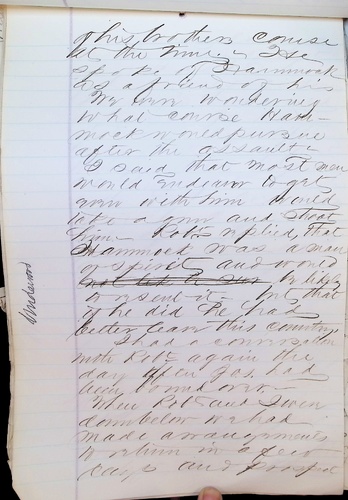 of his brothers course
at the time. He
spoke of Hammock
as a friend of his
We were wondering
what course Ham-
mock would pursue
after the assault.
I said that most men
would endeavor to get
even with him would
take a gun and shoot
him. Rob't replied, that
Hammock was a man
of spirit and would
be likely
to resent it. but that
if he did he had
better leave this country.
I had a conversation
with Rob't again the
day after Jas. had
been bound over.
When Rob't and I were
down below we had
made arrangements
to return in a few
days and prospect
Underwood